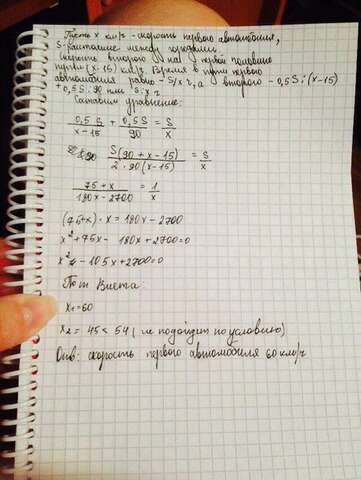 Пусть x км/ч - скорость первого автомобиля,
S - расстояние между городами.
Скорость второго на первой половине
пути (x-15) км/ч. Время в пути первого
автомобиля равно - S/x ч, а второго - 0,5S:(x-15)
+ 0,5S:90 или S:x ч
Составим уравнение:
0,5S/(x-15) + 0,5S/90 = S/x
S(90+x-15)/(2·90(x-15)) = S/x
(75+x)/(180x-2700) = 1/x
(75+x)·x = 180x-2700
x²+75x-180x+2700=0
x²-105x+2700=0
По т Виета:
x₁=60
x₂ = 45 < 54 (не подойдет по условию)
Отв: скорость первого автомобиля 60 км/ч